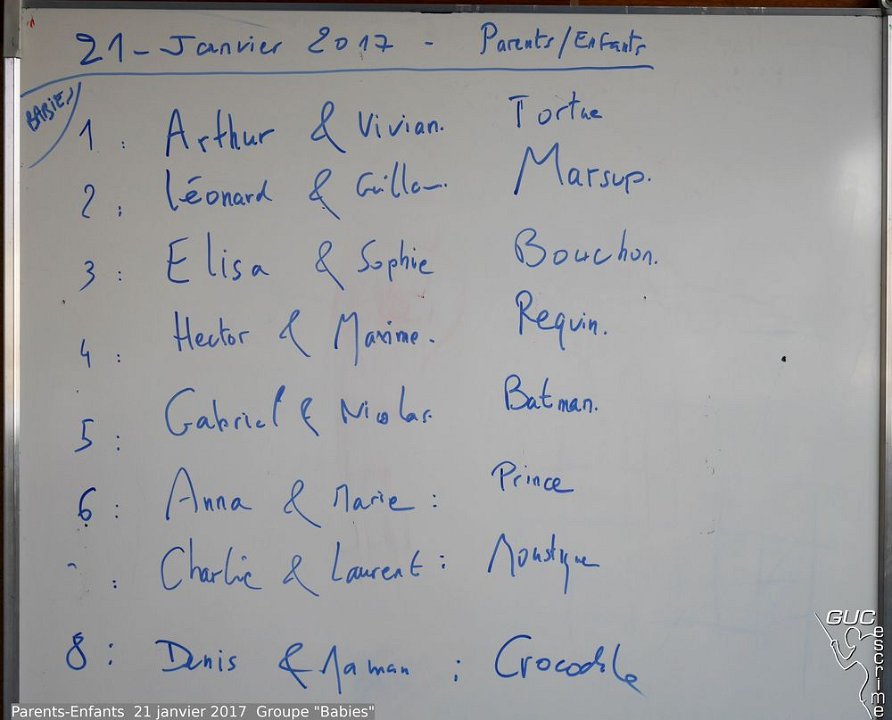 21 - Janvier 2017 - Parents/Enfants
BABIES
1 : Arthur & Vivian. Tortue
2 : Léonard & Guillau. Marsup.
3 : Elisa & Sophie Bouchon.
4 : Hector & Maxime. Requin.
5 : Gabriel & Nicolas. Batman.
6 : Anna & Marie : Prince
: Charlie & Laurent : Moustique
8 : Denis & Maman : Crocodile
GUC
escrime
Parents-Enfants 21 janvier 2017 Groupe "Babies"